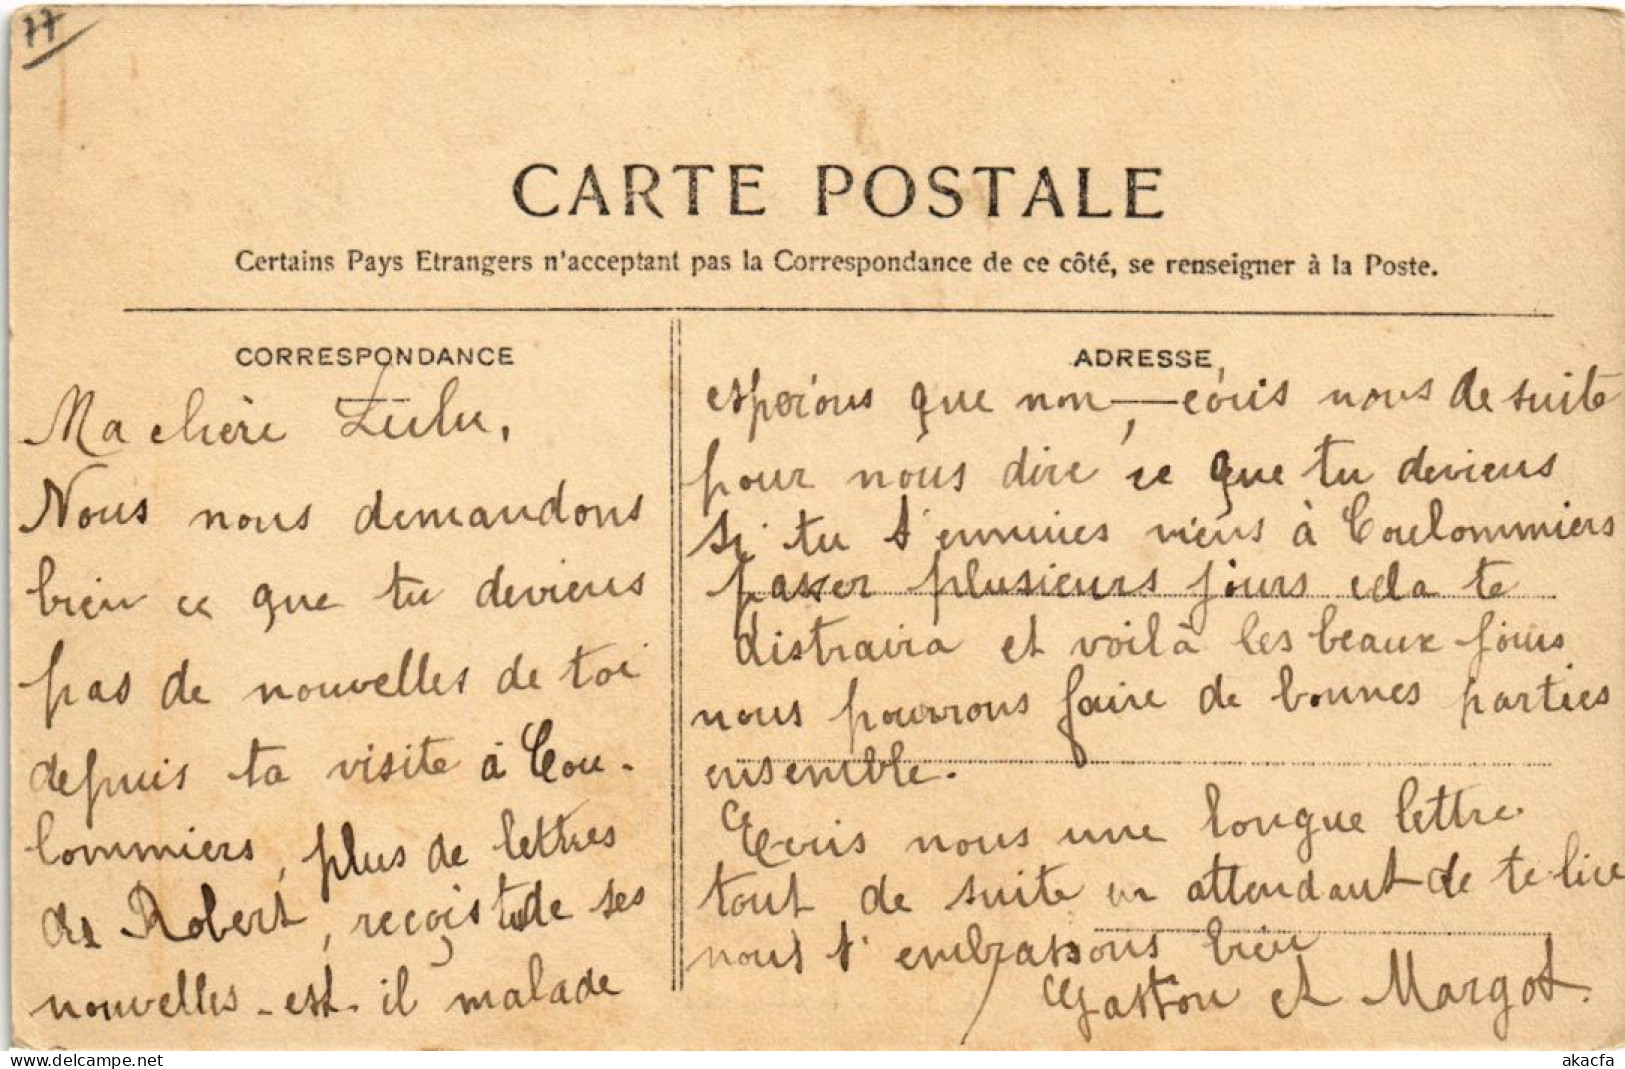 77
CARTE POSTALE
Certains Pays Etrangers n'acceptant pas la Correspondance de ce côté, se renseigner à la Poste.
CORRESPONDANCE
Ma chère Lulu,
Nous nous demandons
bien ce que tu deviens
pas de nouvelles de toi
depuis ta visite à Cou-
lommiers, plus de lettres
de Robert, reçois tu de ses
nouvelles - est-il malade
ADRESSE
espérons que non, — écris nous de suite
pour nous dire ce que tu deviens
si tu t'ennuies viens à Coulommiers
passer plusieurs jours cela te
distraira et voilà les beaux jours
nous pourrons faire de bonnes parties
ensemble.
Ecris nous une longue lettre
tout de suite en attendant de te lire
nous t'embrassons bien
Gaston et Margot.
akacfa